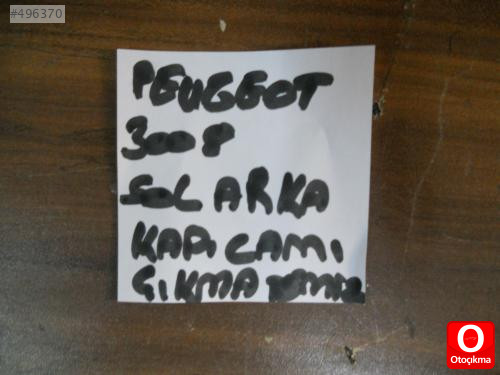 #496370
PEUGEOT
3008
SOL ARKA
KAPI CAMI
ÇIKMA TEMİZ
O
Otoçıkma